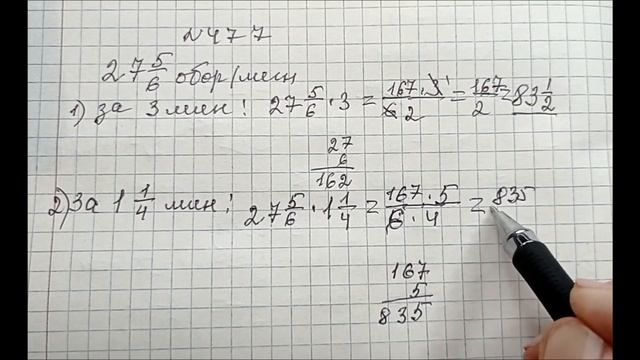 №477
27 5/6 обор/мин
1) за 3 мин: 27 5/6 · 3 = 167·3/6 2 = 167/2 = 83 1/2
27
6
162
2) За 1 1/4 мин: 27 5/6 · 1 1/4 = 167·5/6·4 = 835
167
5
835